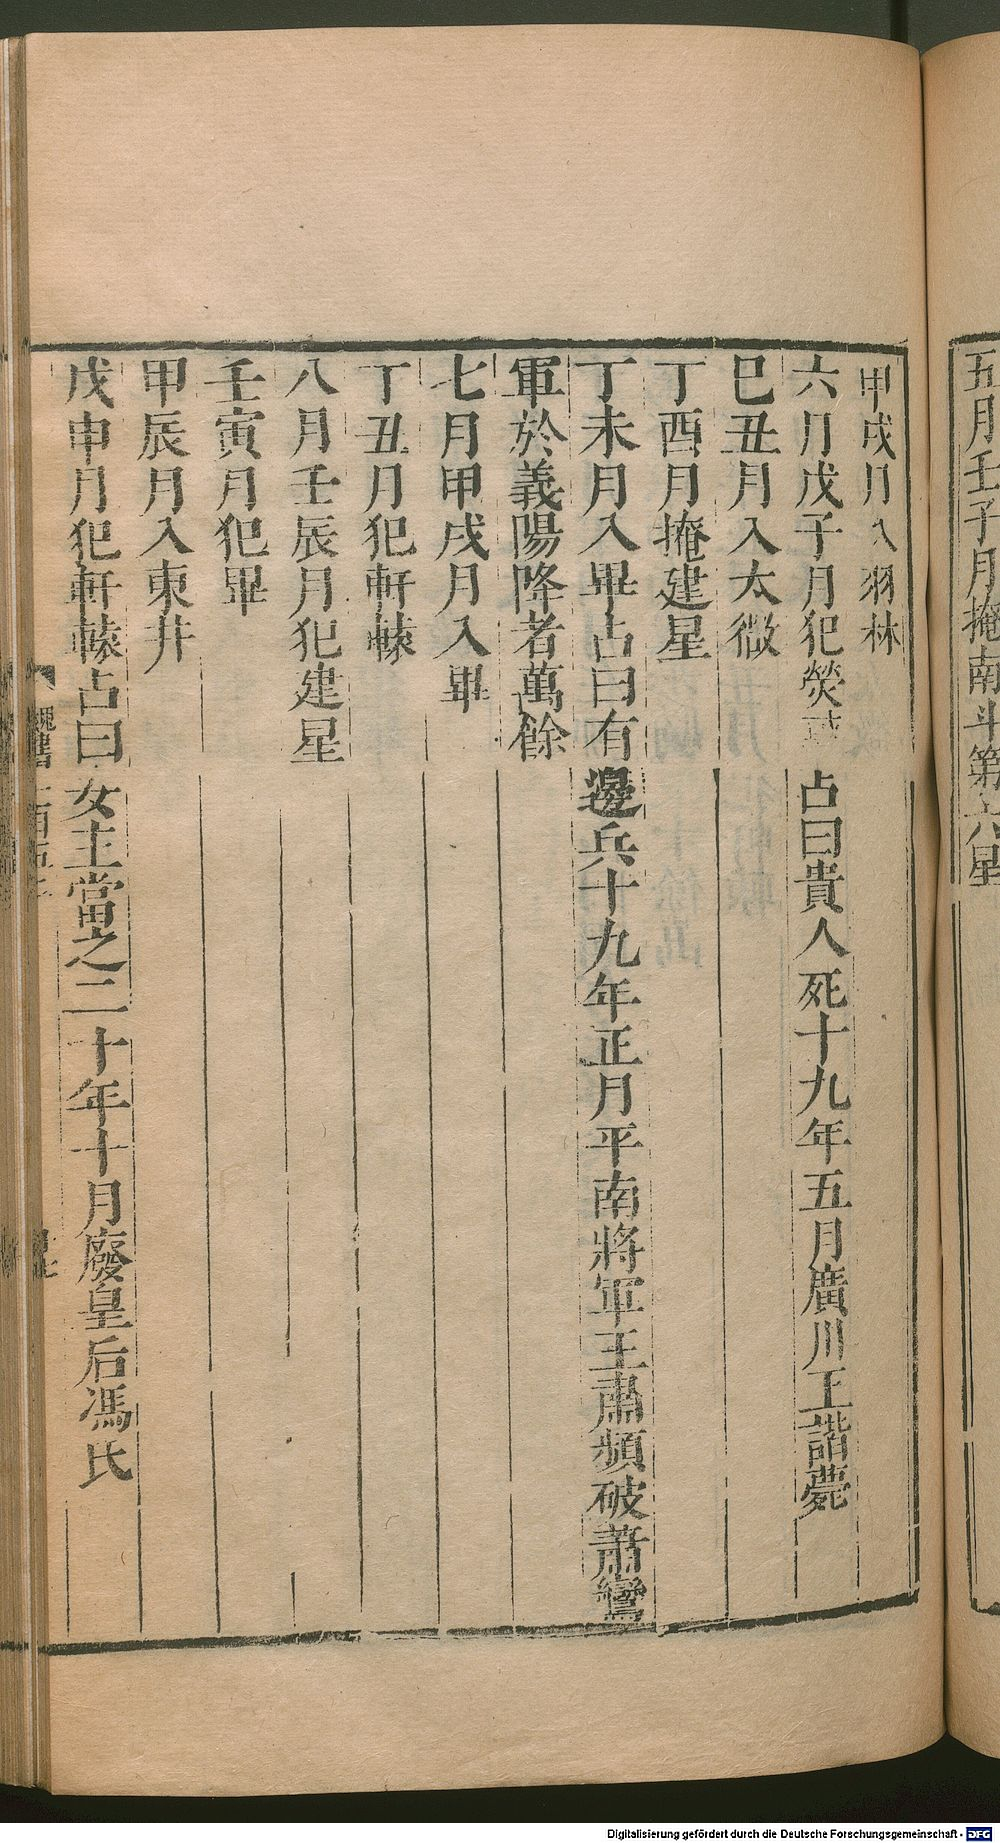 五月壬子月掩南斗第六星
甲戌月入羽林
六月戊子月犯熒惑占曰貴人死十九年五月廣川王諧薨
巳丑月入太微
丁酉月掩建星
丁未月入畢占曰有邊兵十九年正月平南將軍王肅頻破蕭鸞
軍於義陽降者萬餘
七月甲戌月入畢
丁丑月犯軒轅
八月壬辰月犯建星
壬寅月犯畢
甲辰月入東井
戊申月犯軒轅占曰女主當之二十年十月廢皇后馮氏
魏書
Digitalisierung gefördert durch die Deutsche Forschungsgemeinschaft - DFG